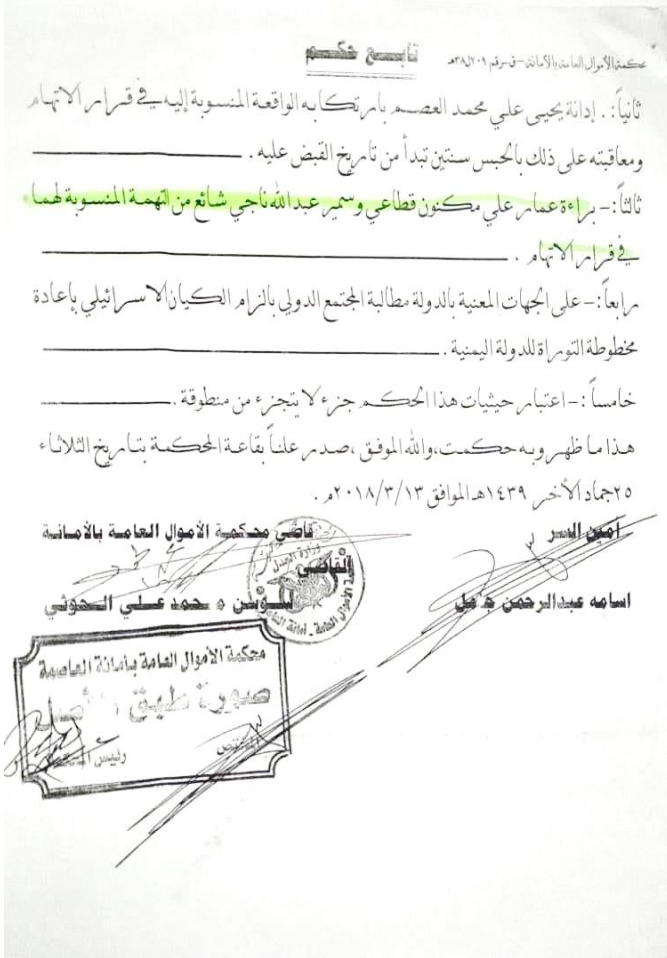 محكمة الأموال العامة بالأمانة - ق-رقم ٢٠٩ل٣٨هـ
تابع حكم
ثانياً: . إدانة يحيى علي محمد العصم بارتكابه الواقعة المنسوبة إليه في قرار الاتهام
ومعاقبته على ذلك بالحبس سنتين تبدأ من تاريخ القبض عليه .
ثالثاً:- براءة عمار علي مكنون قطاعي وسمير عبدالله ناجي شائع من التهمة المنسوبة لهما
في قرار الاتهام .
رابعاً:- على الجهات المعنية بالدولة مطالبة المجتمع الدولي بالزام الكيان الاسرائيلي بإعادة
مخطوطة التوراة للدولة اليمنية .
خامساً :- اعتبار حيثيات هذا الحكم جزء لا يتجزء من منطوقة .
هذا ما ظهر وبه حكمت، والله الموفق ،صدر علناً بقاعة المحكمة بتاريخ الثلاثاء
٢٥جماد الأخر ١٤٣٩هـ الموافق ٢٠١٨/٣/١٣م .
أمين السر
قاضي محكمة الأموال العامة بالأمانة
القاضي
اسامه عبدالرحمن
محمد علي الحوثي
وزارة العدل
محكمة الأموال العامة بأمانة العاصمة
صورة طبق الأصل
المختص
رئيس